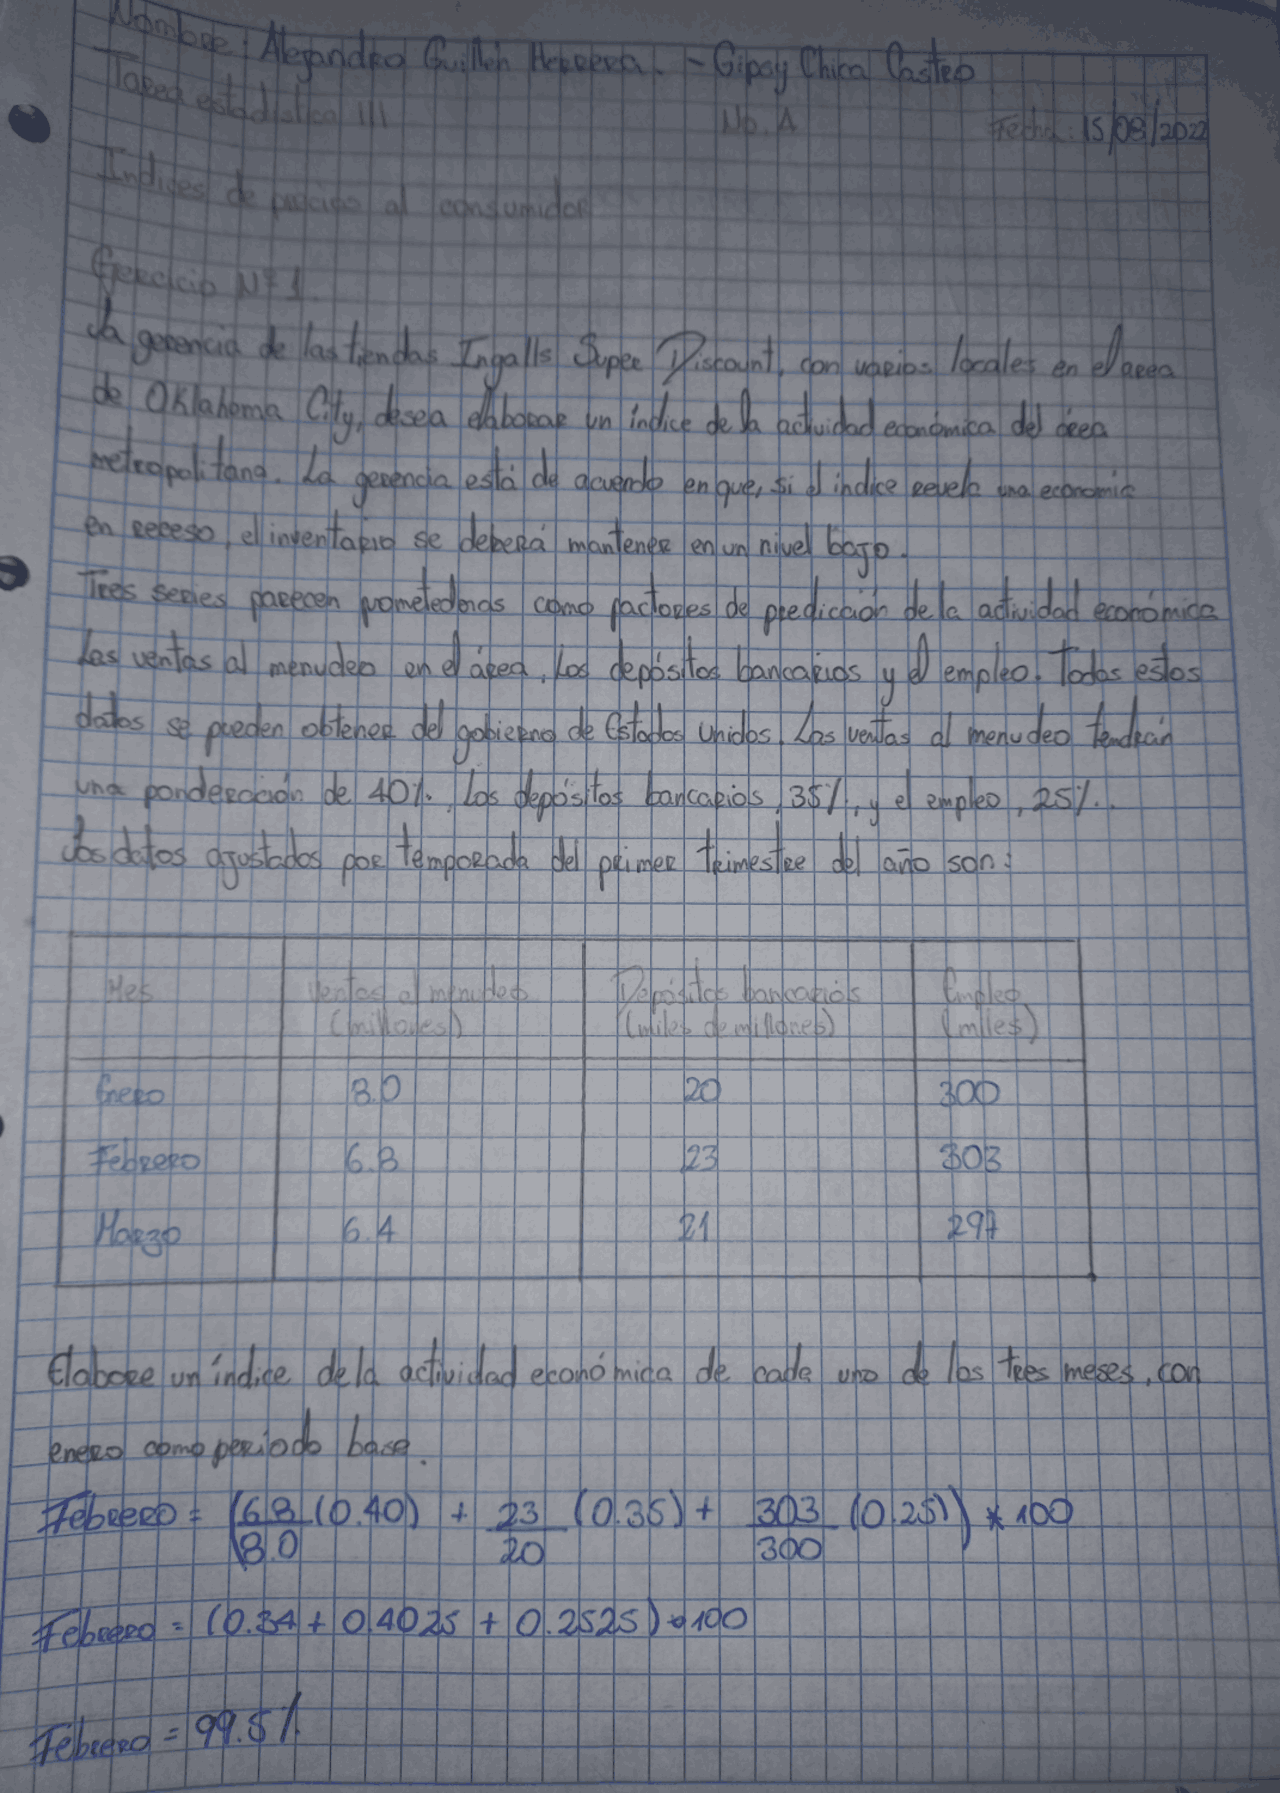 Nombre: Alejandro Guillén Herrera. - Gipsy Chica Castro
Tarea estadística III No. A Fecha: 15/08/2022
Índices de precios al consumidor
Ejercicio Nº 1.
La gerencia de las tiendas Ingalls Super Discount, con varios locales en el área
de Oklahoma City, desea elaborar un índice de la actividad económica del área
metropolitana. La gerencia está de acuerdo en que, si el índice revela una economía
en receso, el inventario se deberá mantener en un nivel bajo.
Tres series parecen prometedoras como factores de predicción de la actividad económica
Las ventas al menudeo en el área, Los depósitos bancarios y el empleo. Todos estos
datos se pueden obtener del gobierno de Estados Unidos. Las ventas al menudeo tendrán
una ponderación de 40%. Los depósitos bancarios, 35%, y el empleo, 25%.
Los datos ajustados por temporada del primer trimestre del año son:
Mes Ventas al menudeo (millones) Depósitos bancarios (miles de millones) Empleo (miles)
Enero 8.0 20 300
Febrero 6.8 23 303
Marzo 6.4 21 297
Elabore un índice de la actividad económica de cada uno de los tres meses, con
enero como periodo base.
Febrero = (6.8/8.0 (0.40) + 23/20 (0.35) + 303/300 (0.25)) * 100
Febrero = (0.34 + 0.4025 + 0.2525) * 100
Febrero = 99.5%